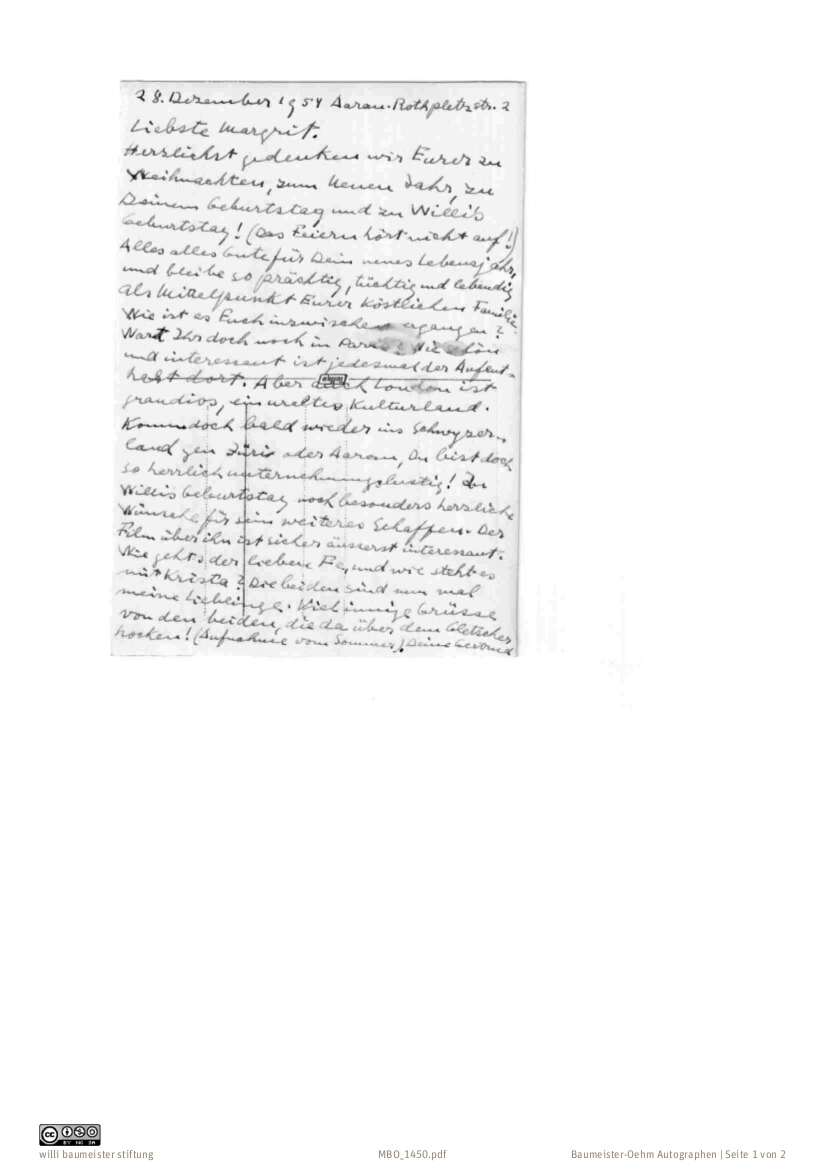 28. Dezember 1954 Aarau. Rothpletzstr. 2
Liebste Margrit.
Herzlichst gedenken wir Eurer zu
Weihnachten, zum Neuen Jahr, zu
Deinem Geburtstag und zu Willis
Geburtstag! (Das Feiern hört nicht auf!)
Alles alles Gute für Dein neues Lebensjahr,
und bleibe so prächtig, tüchtig und lebendig
als Mittelpunkt Eurer köstlichen Familie.
Wie ist es Euch inzwischen ergangen?
Wart Ihr doch noch in Paris? Wie schön
und interessant ist jedesmal der Aufent-
halt dort. Aber auch London ist
grandios, ein uraltes Kulturland.
Komm doch bald wieder ins Schwyzer-
land gen Züri oder Aarau, Du bist doch
so herrlich unternehmungslustig! Zu
Willis Geburtstag noch besonders herzliche
Wünsche für sein weiteres Schaffen. Der
Film über ihn ist sicher äusserst interessant.
Wie geht's der lieben Fe, und wie steht es
mit Krista? Die beiden sind nun mal
meine Lieblinge. Viel innige Grüsse
von den beiden, die da über dem Gletscher
hocken! (Aufnahme vom Sommer) Deine Gertrud
CC BY NC SA
willi baumeister stiftung MBO_1450.pdf Baumeister-Oehm Autographen | Seite 1 von 2